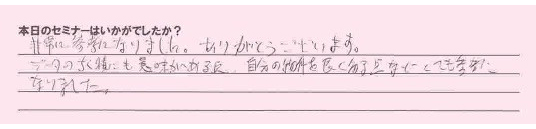 本日のセミナーはいかがでしたか？
非常に参考になりました。ありがとうございます。
データの な 値にも意味がある点、自分の物件を良く知る点などとても参考に
なりました。